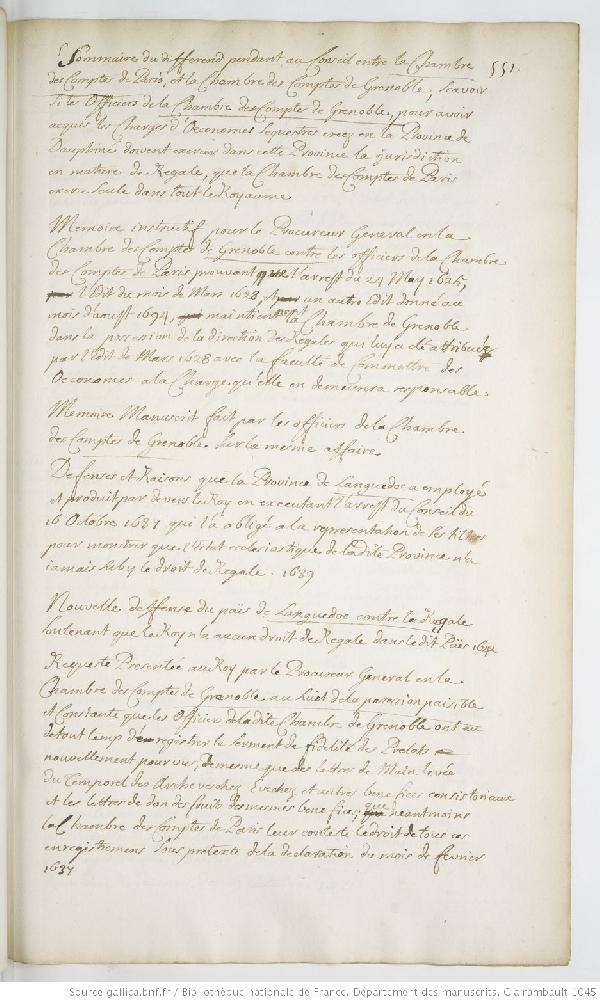 Sommaire du differend pendant au Conseil entre la Chambre
551.
des Comptes de Paris, et la Chambre des Comptes de Grenoble, scavoir
si les Officiers de la Chambre des Comptes de Grenoble, pour avoir
acquis les Charges d'Oeconomes sequestres creez en la Province de
Dauphiné doivent exercer dans cette Province la jurisdiction
en matiere de Regale, que la Chambre des Comptes de Paris
exerce seule dans tout le Royaume
Memoire instructif pour le Procureur General en la
Chambre des Comptes de Grenoble contre les officiers de la Chambre
des Comptes de Paris prouvant que l'arrest du 24 May 1625,
l'Edit du mois de Mars 1628, et un autre Edit donné au
mois d'aoust 1694, maintiennent la Chambre de Grenoble
dans la possession de la direction des Regales qui luy a été attribuée
par l'Edit de Mars 1628 avec la faculté de Commettre des
Oeconomes a la Charge qu'elle en demeurera responsable.
Memoire Manuscrit fait par les officiers de la Chambre
des Comptes de Grenoble sur la mesme affaire
Defenses et Raisons que la Province de Languedoc a employé
et produit par devers le Roy en executant l'arrest du Conseil du
16 Octobre 1681 qui l'a obligé a la representation de ses titres
pour monstrer que l'Estat ecclesiastique de ladite Province n'a
iamais suby le droit de Regale. 1689
Nouvelle deffense du païs de Languedoc contre la Regale
soutenant que le Roy n'a aucun droit de Regale dans ledit Païs
Requeste Presentée au Roy par le Procureur General en la
Chambre des Comptes de Grenoble au sujet de la possession paisible
et Constante que les Officiers de ladite Chambre de Grenoble ont eu
de tout temp d'enregistrer le serment de fidelité des Prelats
nouvellement pourvus, de mesme que des lettres de Main levée
du Temporel des Archeveschez Eveschez et autres benefices consistoriaux
et les lettres de don des fruits des mesmes benefices, que neantmoins
la Chambre des Comptes de Paris leur conteste le droit de tous ces
enregistremens sous pretexte de la declaration du mois de fevrier
1637
Source gallica.bnf.fr / Bibliothèque nationale de France. Département des manuscrits. Clairambault 1045